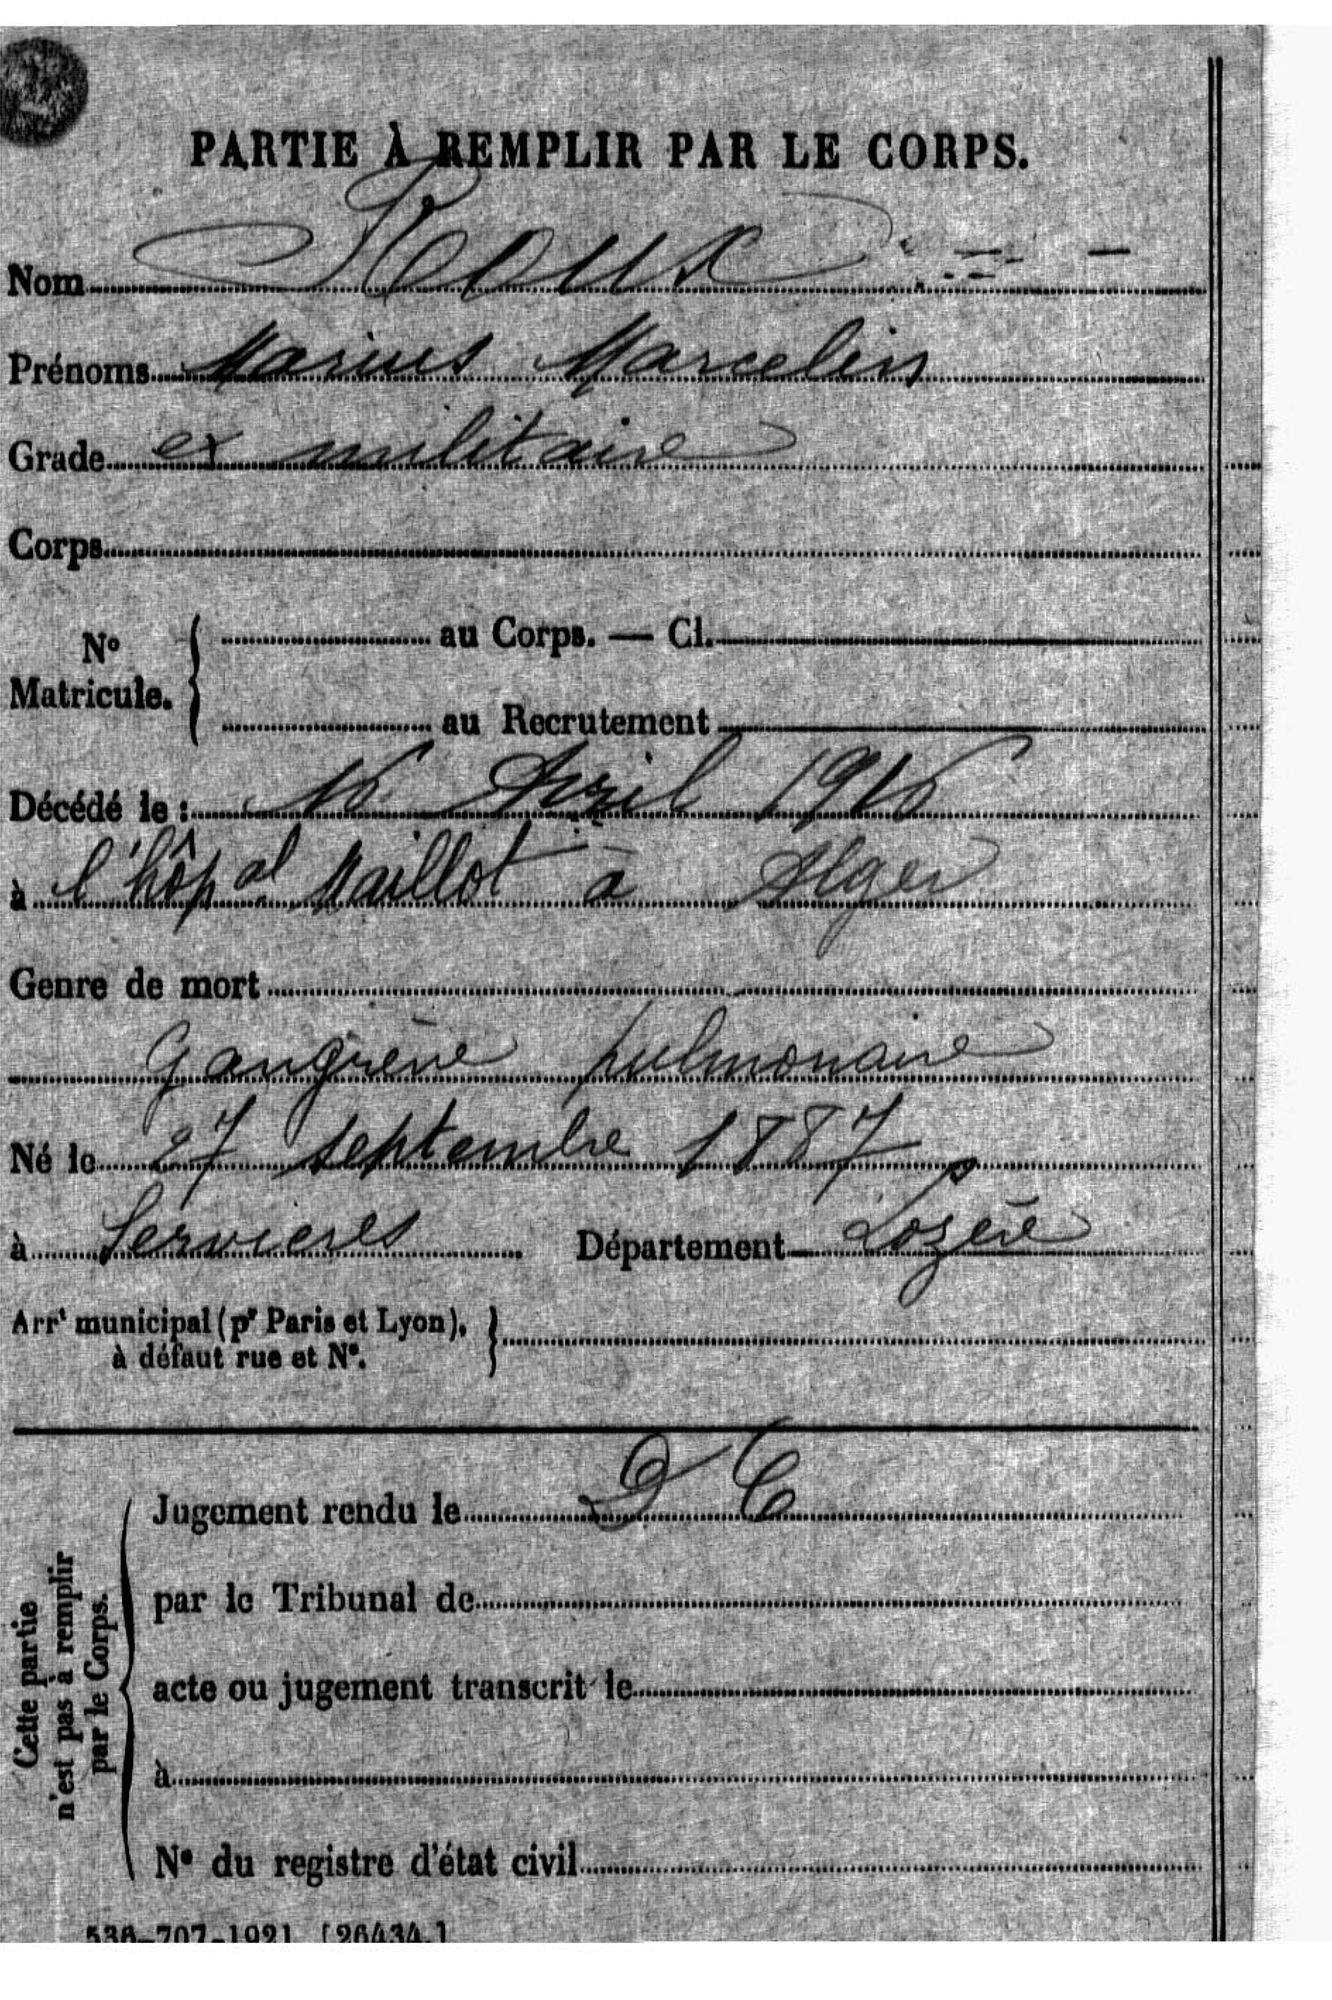 PARTIE À REMPLIR PAR LE CORPS.
Nom Roux
Prénoms Marius Marcelin
Grade ex militaire
Corps
N° Matricule. { au Corps. — Cl.
au Recrutement
Décédé le : 16 Avril 1916
à l'hôpal Maillot à Alger
Genre de mort
Gangrène pulmonaire
Né le 27 septembre 1887
à Servieres Département Lozère
Arrt municipal (pr Paris et Lyon), }
à défaut rue et N°.
Cette partie
n'est pas à remplir
par le Corps.
Jugement rendu le D C
par le Tribunal de
acte ou jugement transcrit le
à
N° du registre d'état civil
536-707-1921. [26434.]